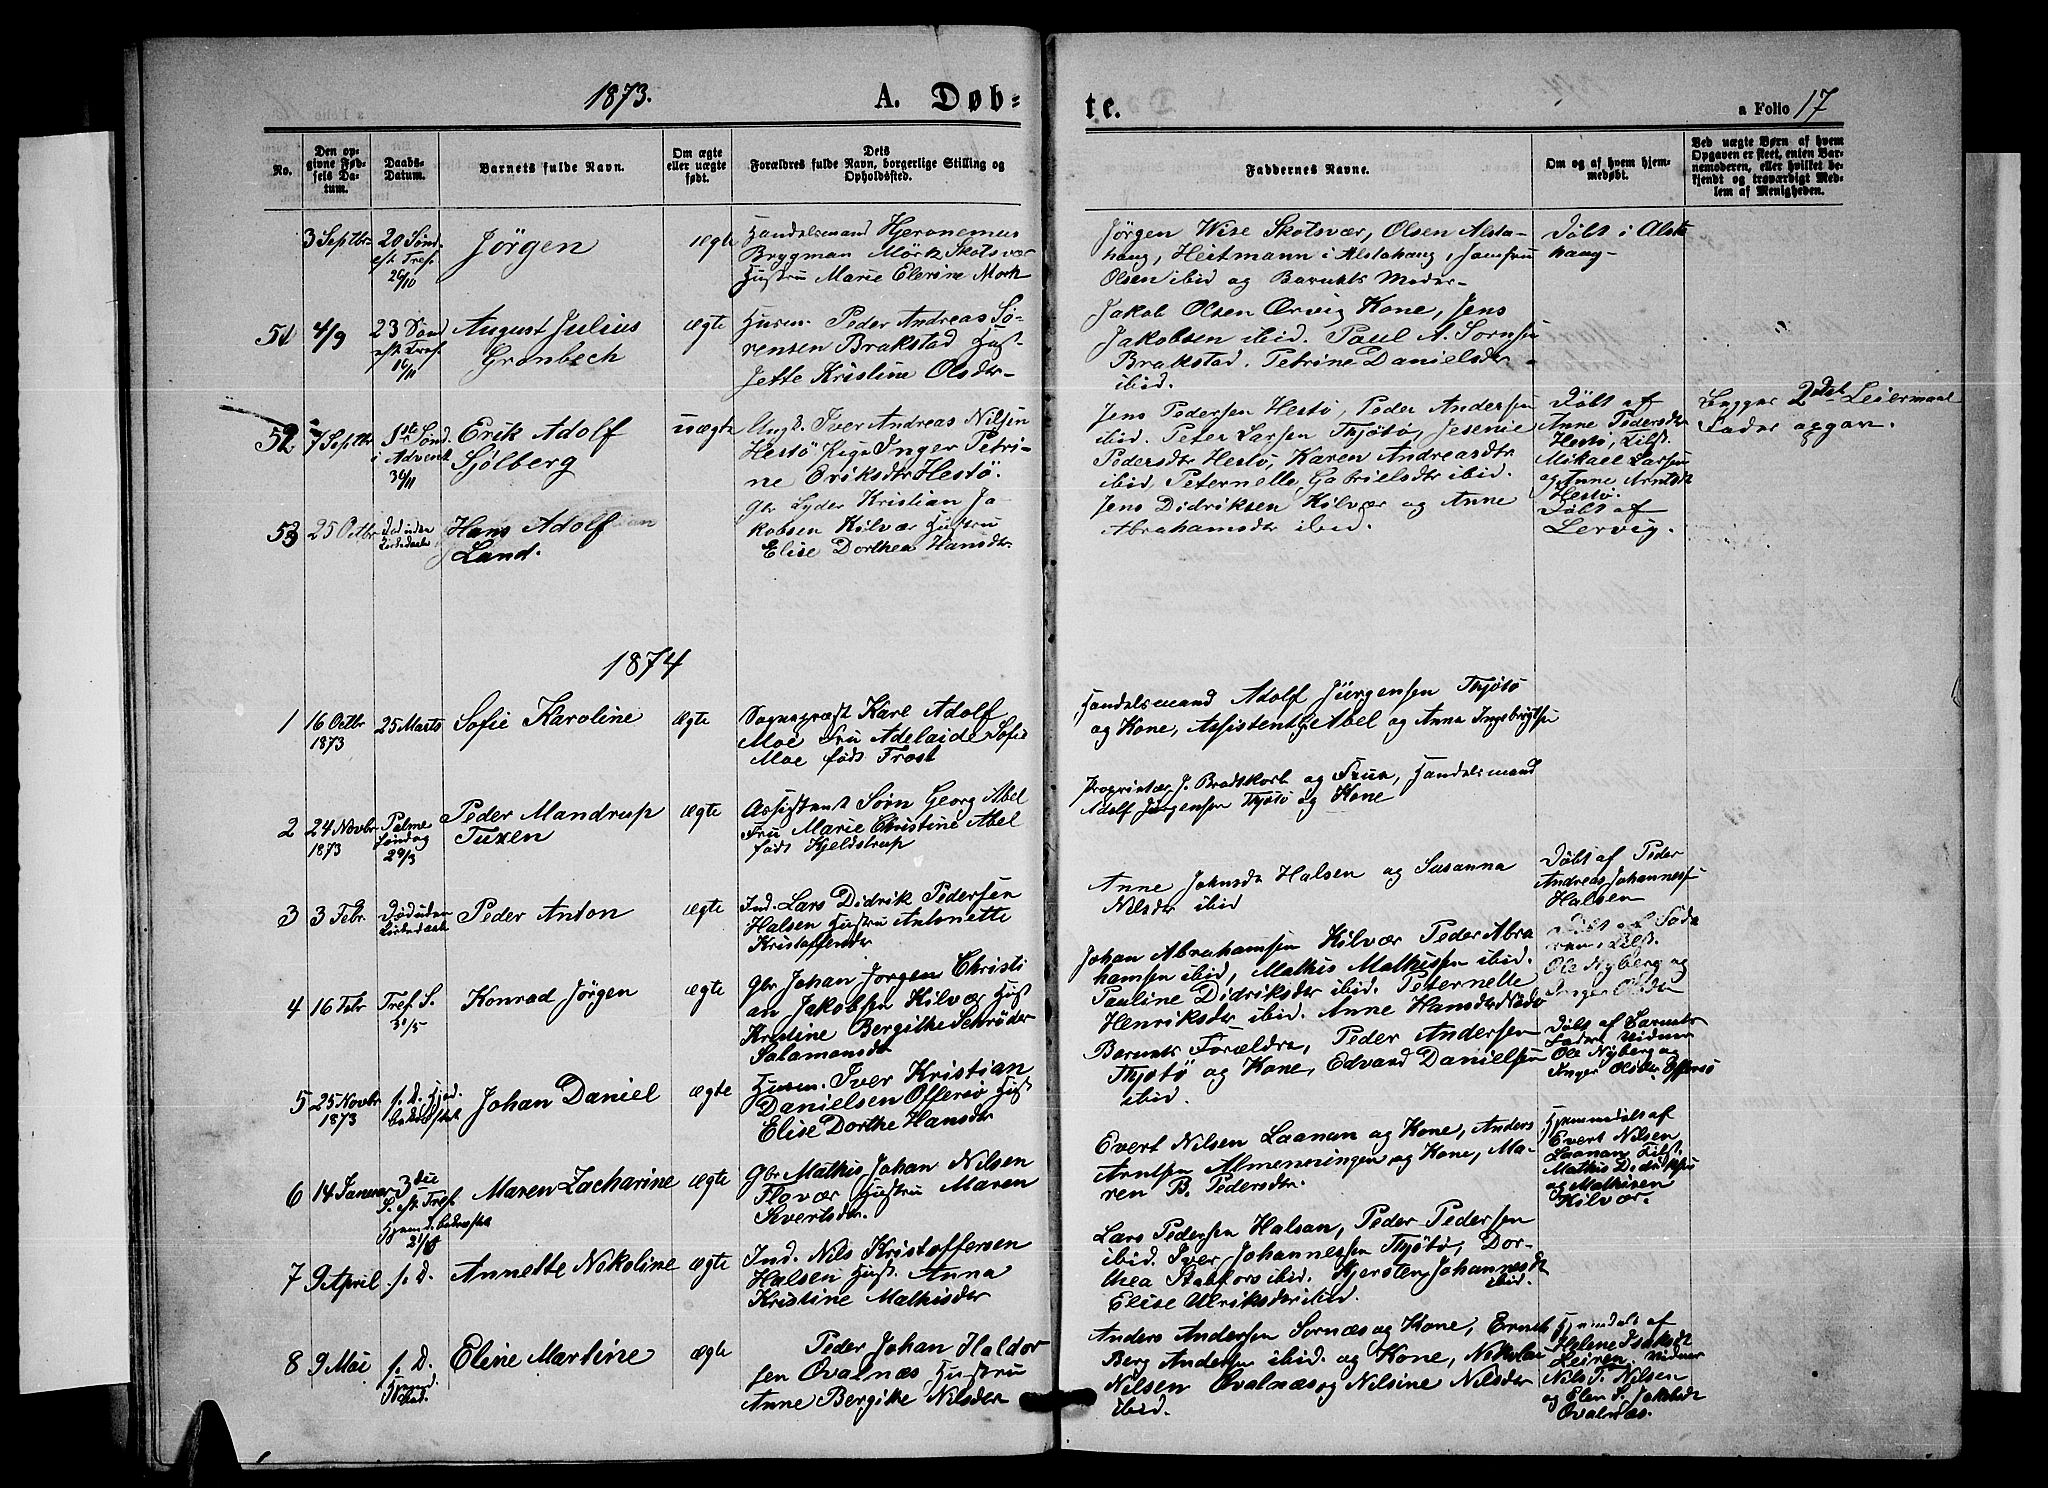 1873.
A. Døb=
te.
a Folio 17
No.
Den op-
givne Fød-
sels Da-
tum.
Daabs-
Datum.
Barnets fulde Navn.
Om ægte
eller uægte
født.
Dets
Forældres fulde Navn, borgerlige Stilling og
Opholdssted.
Faddernes Navne.
Om og af hvem hjem-
medøbt.
Ved uægte Børn af hvem
Opgaven er skeet, enten Bar-
nemoderen, eller hvilket be-
kjendt og troværdigt Med-
lem af Menigheden.
3 Septbr
20 Sønd
eft. Tref.
26/10
Jørgen
ægte
Handelsmand Hjeronemus
Brygman Mörk Skotsvær
Hustru Marie Elerine Mork
Jørgen Wise Skotsvær, Olsen Alsta-
haug, Heitmann i Alstahaug, Jomfru
Olsen ibid og Barnets Moder-
Döbt i Alsta
haug-
51
4/9
23 Sönd
eft. Tref.
16/11
August Julius
Gronbech
ægte
Husm. Peder Andreas Sö-
rensen Brakstad Hust
Jette Kristine Olsdtr-
Jakob Olsen Örvig Kone, Jens
Jakobsen ibid. Paul A. Sornsen
Brakstad. Petrine Danielsdtr
ibid.
52
7 Septbr
1ste Sönd.
i Advent
30/11
Erik Adolf
Sjölberg
uægte
Ungk. Iver Andreas Nilsen
Hestö Pige Inger Petri-
ne Eriksdtr Hestö.
Jens Pedersen Hestö, Peder Andersen
ibid. Peter Larsen Thjötö, Jesenie
Pedersdtr Hestö, Karen Andreasdtr
ibid, Peternelle Gabrielsdtr ibid.
Döbt af
Anne Pedersdtr
Hestö, Tilst.
Mikael Larsen
og Anne Arntsdtr
Hestö.
Begges 2det Leiermaal
Fader opgav.
53
25 Octbr
Död uden
Kirkedaab
Hans Adolf
Land.
Gbr Lyder Kristian Ja-
kobsen Kilvær Hustru
Elise Dorthea Hansdtr
Jens Didriksen Kilvær og Anne
Abrahamsdtr ibid.
Döbt af
Lervig.
1874
1
16 Octbr
1873
25 Marts
Sofie Karoline
ægte
Sognepræst Karl Adolf
Moe Fru Adelaide Sofie
Moe föds Frost
Handelsmand Adolf Jürgensen Thjötö
og Kone, Assistent Abel og Anna Ingebrigtsen
2
24 Novbr
1873
Palme
Söndag
29/3
Peder Mandrup
Tuxen
ægte
Assistent Sörn Georg Abel
Fru Marie Christine Abel
föds Kjeldstrup
Proprietær J. Brodtkorb og Frue, Handelsmand
Adolf Jürgensen Thjötö og Kone
3
3 Febr
Död uden
Kirkedaab
Peder Anton
ægte
Ind. Lars Didrik Pedersen
Halsen Hustru Antonette
Kristoffersdtr
Anne Johnsdtr Halsen og Susanna
Nilsdtr ibid
Döbt af Peder
Andreas Johannesen
Halsen
4
16 Febr
Tref. S.
31/5
Konrad Jörgen
ægte
Gbr Johan Jorgen Christi
an Jakobsen Kilvær Hust
Kristine Bergithe Schröder
Salamonsdtr
Johan Abrahamsen Kilvær Peder Abra
hamsen ibid, Mathis Mathissen ibid.
Pauline Didriksdtr ibid. Peternelle
Henriksdtr ibid. Anne Hansdtr
Döbt af Fade
ren, Tilst.
Ole Nyberg og
Inger Olsdtr
5
25 Novbr
1873
s. D. Hjd.
bekræftet
Johan Daniel
ægte
Husm. Iver Kristian
Danielsen Offersö Hust
Elise Dorthe Hansdtr
Barnets Forældre, Peder Andersen
Thjötö og Kone, Edvard Danielsen
ibid.
Döbt af Barnets
Fader, Vidner
Ole Nyberg og
Inger Olsdtr Offersö
6
14 Januar
3die
S. eft. Tref.
Hjemd. bekræftet
21/6
Maren Zacharine
ægte
Gbr Mathis Johan Nilsen
Flovær Hustru Maren
Evertsdtr.
Evert Nilsen Laanan og Kone, Anders
Arntsen Almenningen og Kone, Ma-
ren B. Pedersdtr.
Hjemmedöbt af
Evert Nilsen
Laanan Tilst.
Mathis Didriksen
og Mathisen
Kilvær.
7
9 April
s. D.
Annette Nikoline
ægte
Ind. Nils Kristoffersen
Halsen Hust. Anna
Kristine Mathisdtr
Lars Pedersen Halsan, Peder Pedersen
ibid. Iver Johannessen Thjötö, Dor-
thea ibid. Kjersten Johannesdtr
ibid.
Elise Ulriksdtr ibid.
8
9 Mai
s. D.
Hjemd.
bek.
Eline Martine
ægte
Peder Johan Haldor
sen Ovalnæs Hustru
Anne Bergithe Nilsdtr
Anders Andersen Sornæs og Kone, Ernst
Berg Andersen ibid. og Kone, Nikolai
Nilsen Ovalnæs og Nilsine Nilsdtr
ibid.
Hjemdöbt af
Helene Isaksdtr
Leiren. Vidner
Nils T. Nilsen
og Elen S. Jakobsdtr
Ovalnæs.